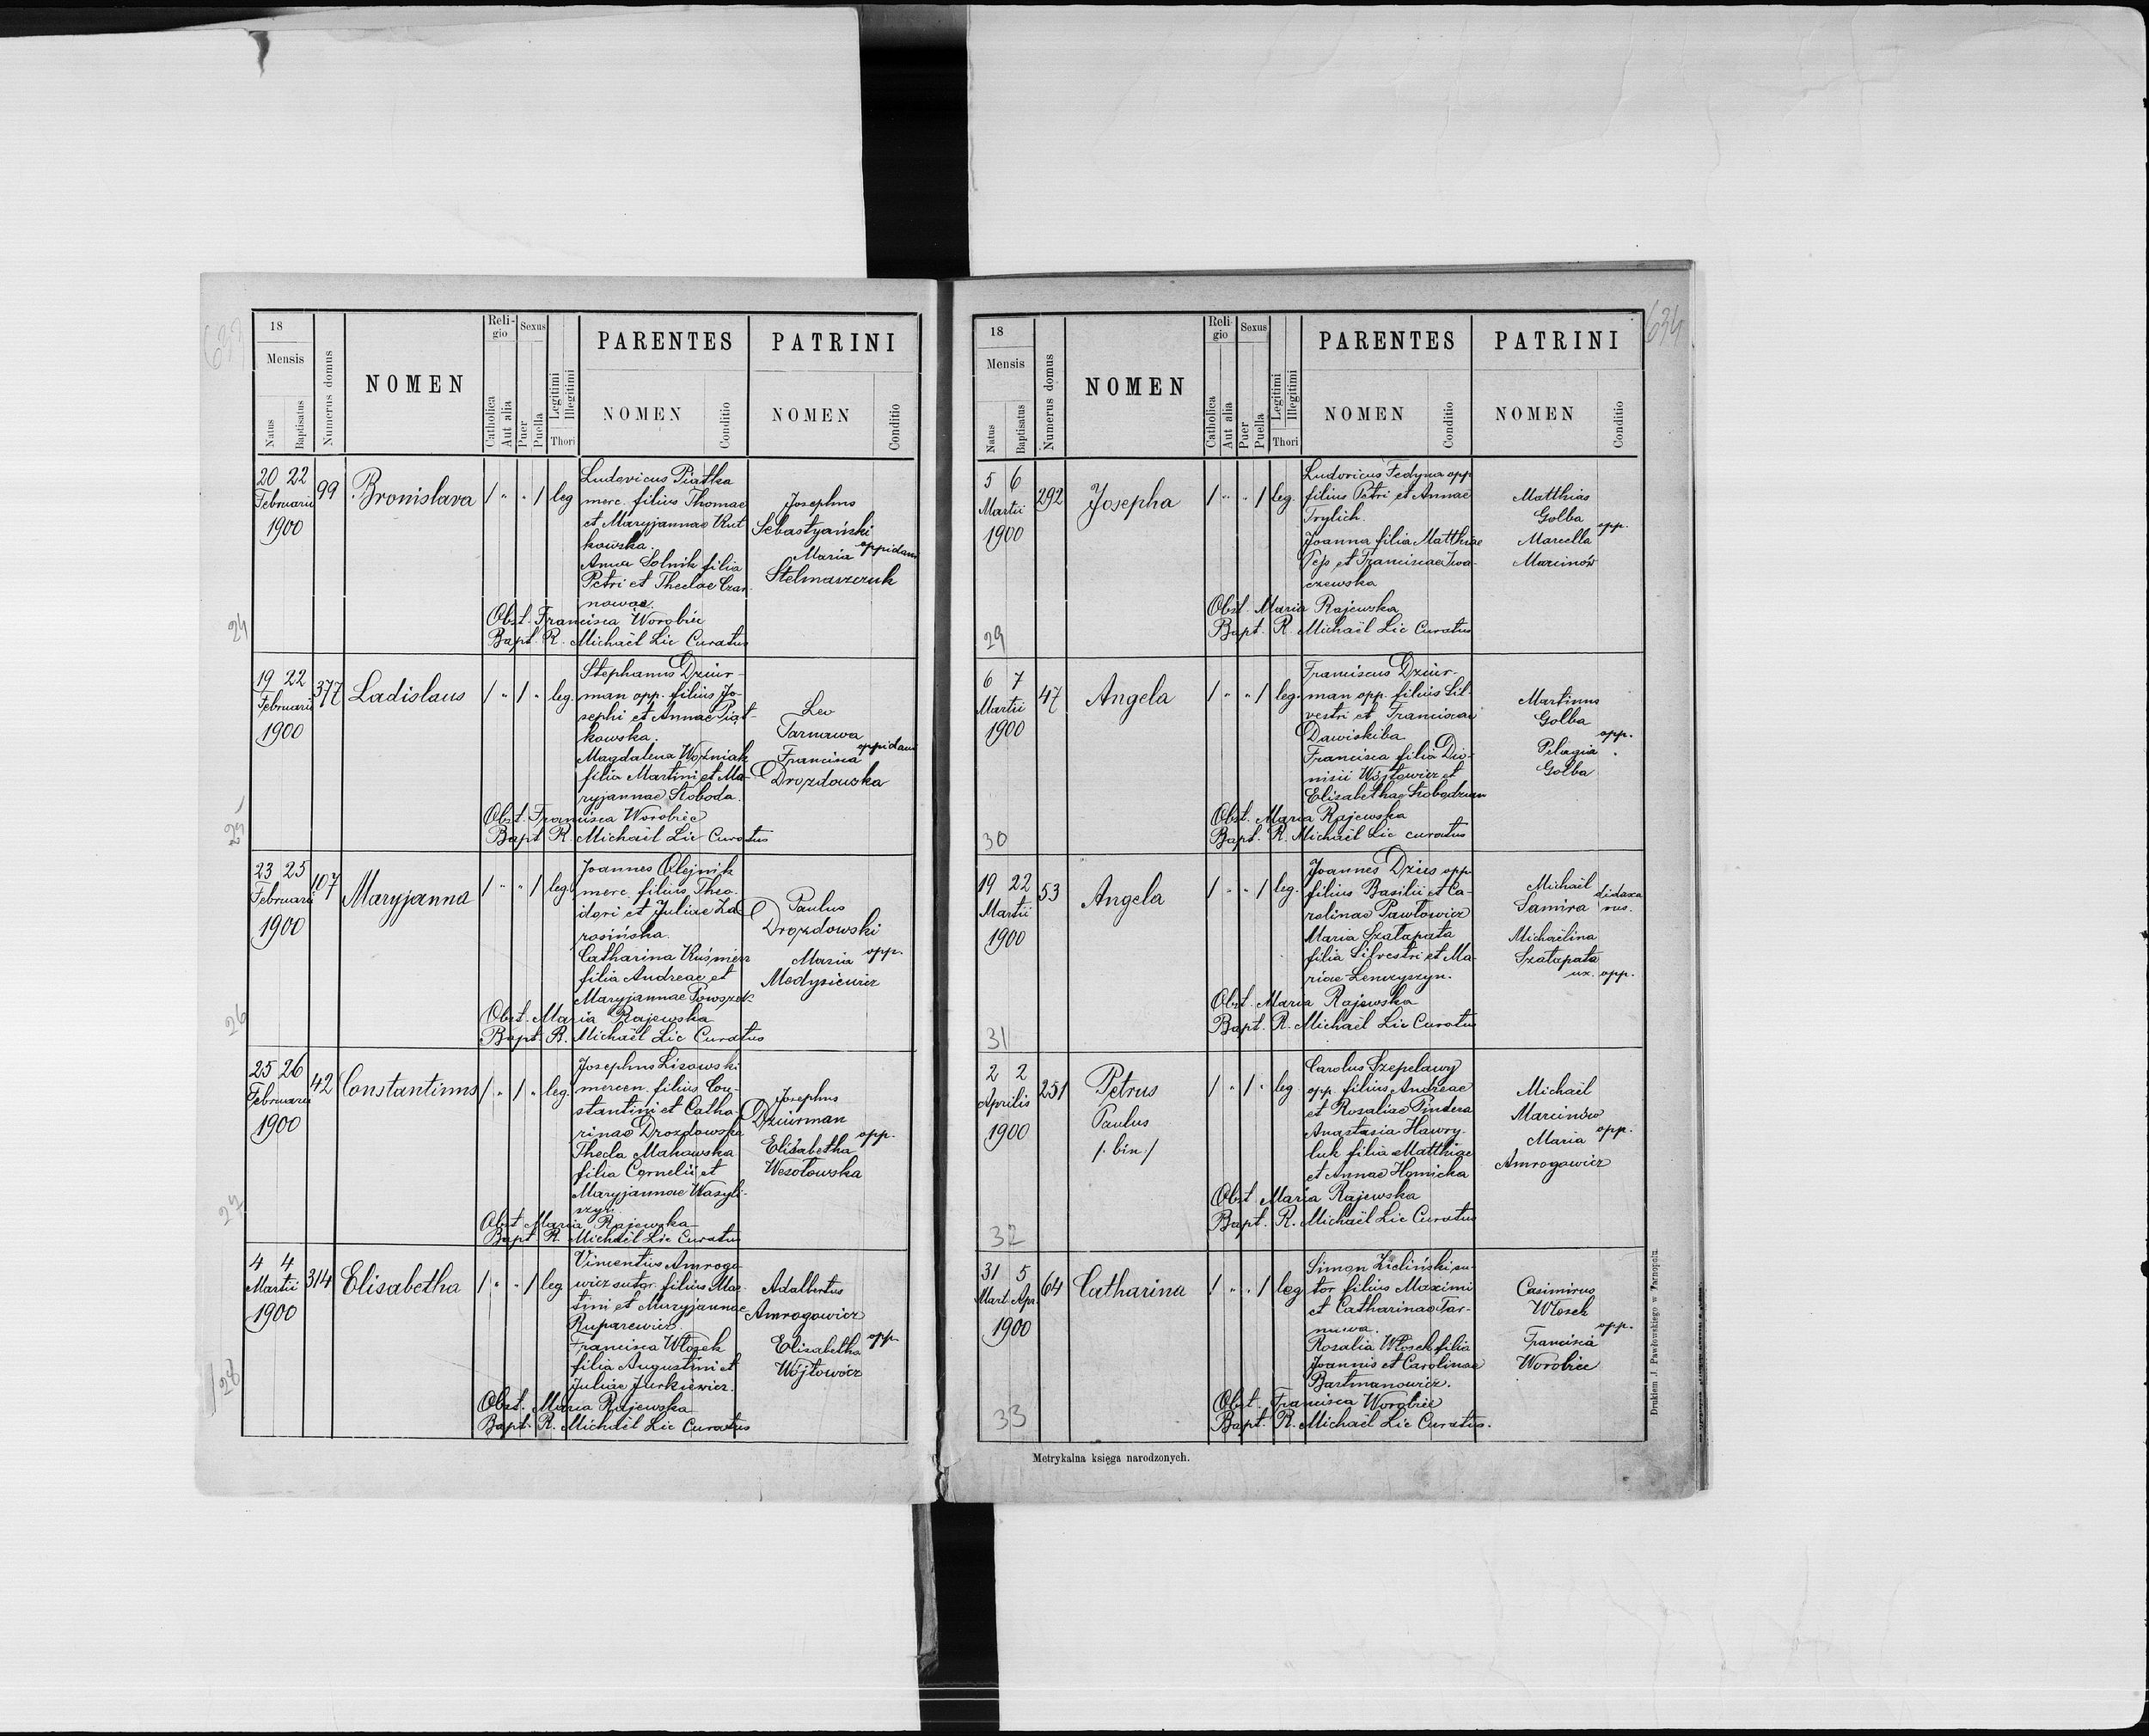 633
18
Mensis
Natus
Baptisatus
Numerus domus
NOMEN
Reli-
gio
Catholica
Aut alia
Sexus
Puer
Puella
Legitimi
Illegitimi
Thori
PARENTES
NOMEN
Conditio
PATRINI
NOMEN
Conditio
24
20 22
Februarii
1900
99
Bronislava
/ " " / leg
Ludovicus Piatka
merc. filius Thomae
et Maryjannae Rut
kowska.
Anna Solnik filia
Petri et Theclae Czar
nowae.
Josephus
Sebastyański
Maria oppidani
Stelmaszczuk
Obst. Francisca Worobiec
Bapt. R. Michaël Lic Curatus
25
19 22
Februarii
1900
377
Ladislaus
/ " / " leg.
Stephanus Dziur-
man opp. filius Jo-
sephi et Annae Piat-
kowska.
Magdalena Woźniak
filia Martini et Ma-
ryjannae Słoboda.
Leo
Tarnawa
Francisca oppidani
Drozdowska
Obst. Francisca Worobiec
Bapt R. Michaël Lic Curatus
26
23 25
Februarii
1900
107
Maryjanna
/ " " / leg.
Joannes Olejnik
merc. filius Theo-
dori et Juliae Za
rosińska.
Catharina Kuśnierz
filia Andreae et
Maryjannae Powszek
Paulus
Drozdowski
Maria opp.
Medysiewicz
Obst. Maria Rajewska
Bapt. R. Michaël Lic Curatus
27
25 26
Februarii
1900
42
Constantinus
/ " / " leg.
Josephus Lisowski
mercen. filius Con-
stantini et Catha-
rinae Drozdowska
Thecla Makowska
filia Cornelii et
Maryjannae Wasyli-
szyn.
Josephus
Dziurman
Elisabetha opp.
Wesołowska
Obst Maria Rajewska
Bapt R. Michaël Lic Curatus
28
4 4
Martii
1900
314
Elisabetha
/ " " / leg
Vincentius Amrogo-
wicz sutor filius Mar-
tini et Maryjannae
Ruparewicz.
Francisca Włosek
filia Augustini et
Juliae Jurkiewicz.
Adalbertus
Amrogowicz
Elisabetha opp
Wójtowicz
Obst. Maria Rajewska
Bapt. R. Michaël Lic Curatus
634
18
Mensis
Natus
Baptisatus
Numerus domus
NOMEN
Reli-
gio
Catholica
Aut alia
Sexus
Puer
Puella
Legitimi
Illegitimi
Thori
PARENTES
NOMEN
Conditio
PATRINI
NOMEN
Conditio
5 6
Martii
1900
29
292
Josepha
/ " " / leg.
Ludovicus Fedyna opp
filius Petri et Annae
Trylich.
Joanna filia Matthiae
et Franciscae Iwa-
czewska
Matthias
Golba
opp.
Marcella
Marcinów
Obst. Maria Rajewska
Bapt. R. Michaël Lic Curatus
6 7
Martii
1900
30
47
Angela
/ " " / leg.
Franciscus Dziur-
man opp. filius Sil-
vestri et Franciscae
Dawiskiba
Francisca filia Dio-
nisii Wójtowicz et
Elisabethae Słobodzian
Martinus
Golba
opp.
Pelagia
Golba
Obst. Maria Rajewska
Bapt. R. Michaël Lic curatus
19 22
Martii
1900
31
53
Angela
/ " " / leg.
Joannes Dzius opp
filius Basilii et Ca-
rolinae Pawłowicz
Maria Szałapata
filia Silvestri et Ma-
riae Lenczyszyn.
Michaël
Samira
Michaëlina
Szałapata
ux. opp.
Obst. Maria Rajewska
Bapt. R. Michaël Lic Curatus
2 2
Aprilis
1900
32
251
Petrus
Paulus
/. bin /
/ " / " leg
Carolus Szepelawy
opp filius Andreae
et Rosaliae Pindera
Anastasia Hawry-
luk filia Matthiae
et Annae Homicka
Michaël
Marcinów
Maria opp.
Amrogowicz
Obst. Maria Rajewska
Bapt. R. Michaël Lic Curatus
31 5
Mart. Apr.
1900
33
64
Catharina
/ " " / leg
Simon Zieliński su-
tor filius Maximi
et Catharinae Tar-
nawa.
Rosalia Włosek filia
Joannis et Carolinae
Bartmanowicz.
Casimirus
Włosek
opp.
Francisca
Worobiec
Obst. Francisca Worobiec
Bapt. R. Michaël Lic Curatus.
Metrykalna księga narodzonych.
Drukiem J. Pawłowskiego w Tarnopolu.